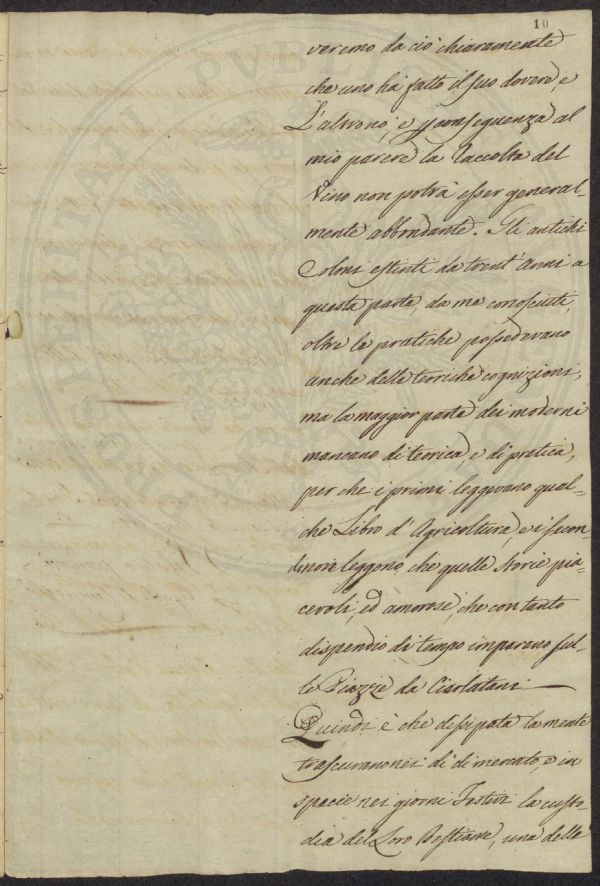 10
veremo da ciò chiaramente
che uno ha fatto il suo dovere, e
L'altro nò, e pconseguenza al
mio parere la Raccolta del
Vino non potrà esser general-
mente abbondante. Gli antichi
Coloni estinti da trent'Anni a
questa parte, da me conosciuti,
oltre le pratiche possedevano
anche delle teoriche cognizioni,
ma la maggior parte dei moderni
mancano di teorica, e di pratica,
perche i primi leggevano qual-
che Libro d'Agricoltura e i secon-
di non leggono che quelle Storie pia-
cevoli, ed amorose, che con tanto
dispendio di tempo imparano sul-
le Piazze da Ciarlatani
Quindi è che dissipata la mente
trascurano nei dì di mercato, e in
specie nei giorni Festivi la custo-
dia del Loro Bestiame, una delle
PROSPERITATI PUBLICAE